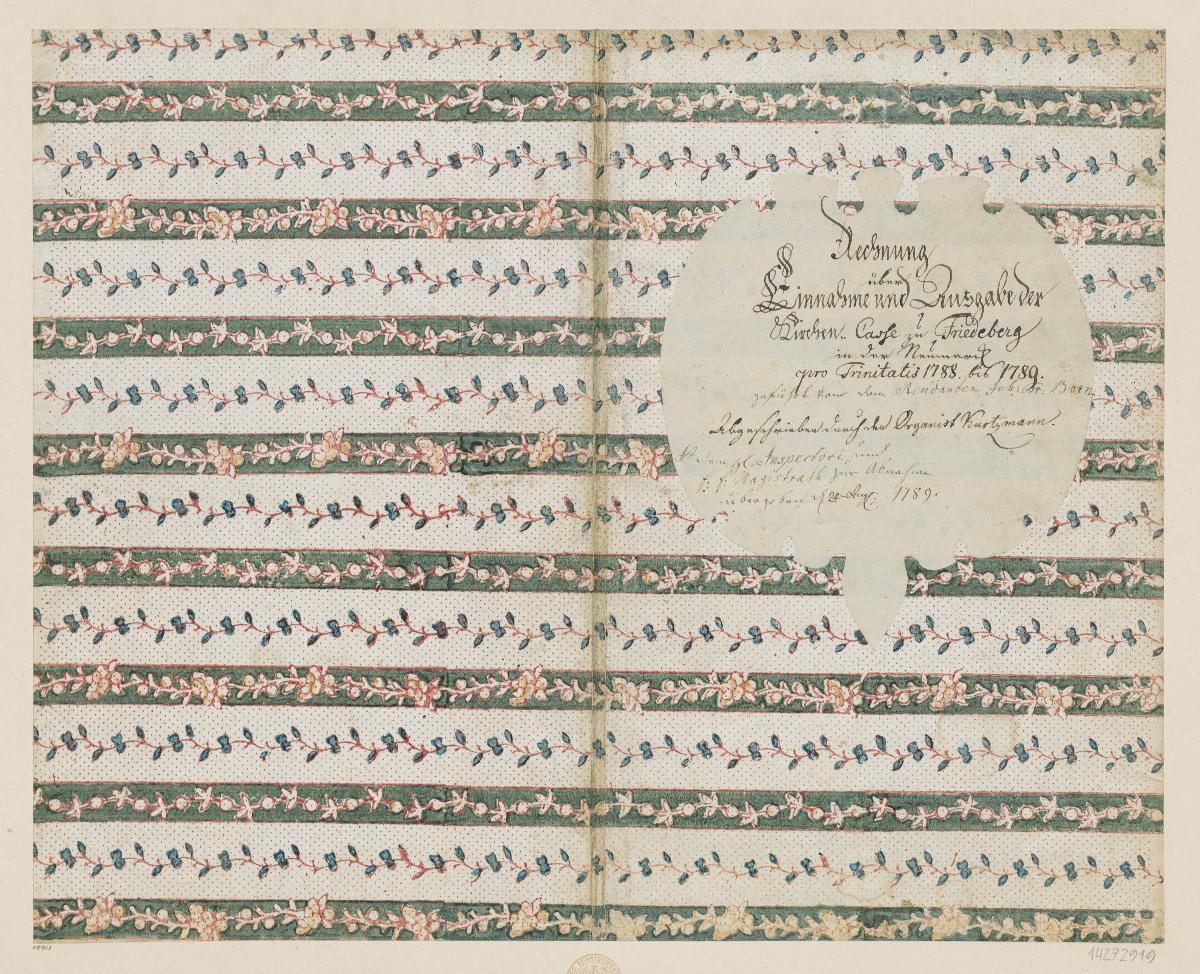 Rechnung
über
Einnahme und Ausgabe der
Kirchen-Casse zu Friedeberg
in der Neumarck
pro Trinitatis 1788 bis 1789.
geführt von dem Rendanten Joh: Born
Abgeschrieben durch den Organist Kurtzmann.
dem Inspectori und
Magistrath zur Abnahme
übergeben d 1789.
14272919